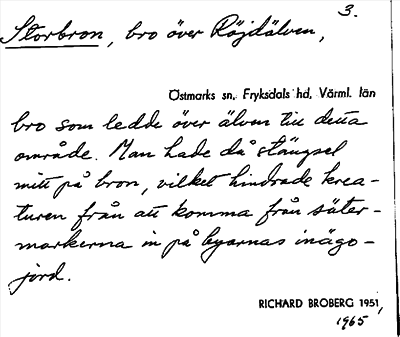 3.
Storbron, bro över Röjdälven,
Östmarks sn, Fryksdals hd, Värml. län
bro som ledde över älven till detta
område. Man hade då stängsel
mitt på bron, vilket hindrade krea-
turen från att komma från säter-
markerna in på byarnas inägo-
jord.
RICHARD BROBERG 1951,
1965